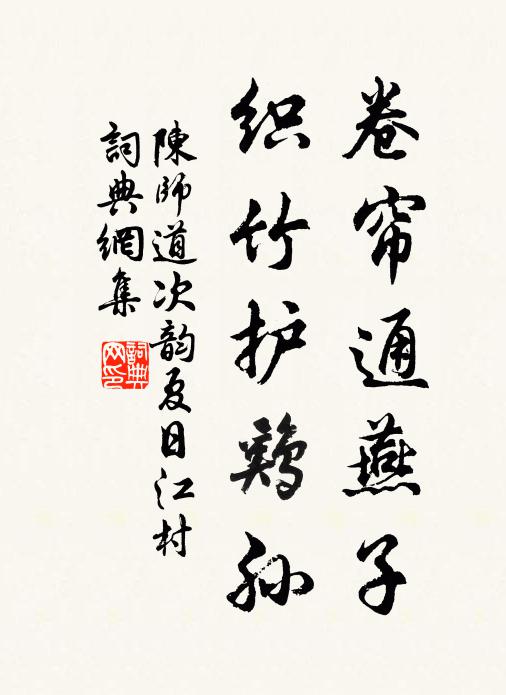 卷帘通燕子
织竹护鸡孙
陳師道次韵夏日江村
詞典網集
詞典網印